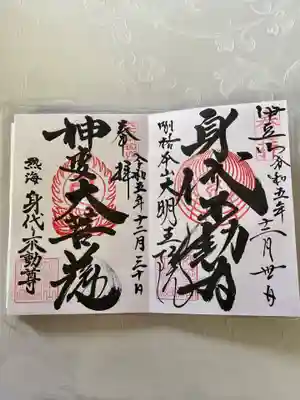 伊豆 令和五年十二月卅一日
身代不動明
別格本山大明王院
奉拝 令和五年十二月三十日
神変大菩薩
熱海 身代り不動尊